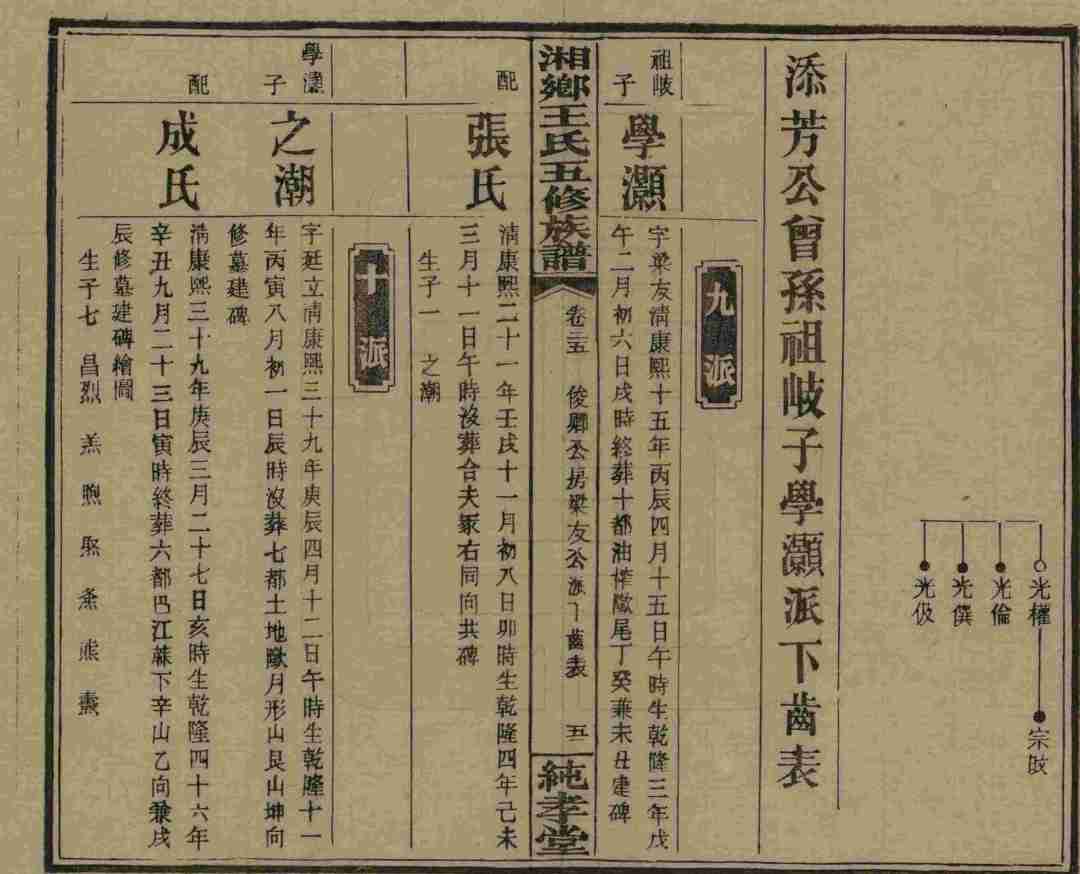 光權 宗歧
光倫
光僎
光伋
添芳公曾孫祖岐子學灝派下齒表
九派
祖岐子
學灝
字梁友淸康熙十五年丙辰四月十五日午時生乾隆三年戊
午二月初六日戌時終葬十都油榨歐尾丁癸兼未丑建碑
湘鄉王氏五修族譜
卷三五
俊卿公房梁友公派丁齒表
五
純孝堂
配
張氏
淸康熙二十一年壬戌十一月初八日卯時生乾隆四年己未
三月十一日午時沒葬合夫冢右同向共碑
生子一 之潮
十派
學灝子
之潮
字廷立淸康熙三十九年庚辰四月十二日午時生乾隆十一
年丙寅八月初一日辰時沒葬七都土地歐月形山艮山坤向
修墓建碑
配
成氏
淸康熙三十九年庚辰三月二十七日亥時生乾隆四十六年
辛丑九月二十三日寅時終葬六都巴江下辛山乙向兼戌
辰修墓建碑繪圖
生子七 昌烈 羔 煦 熊 燾